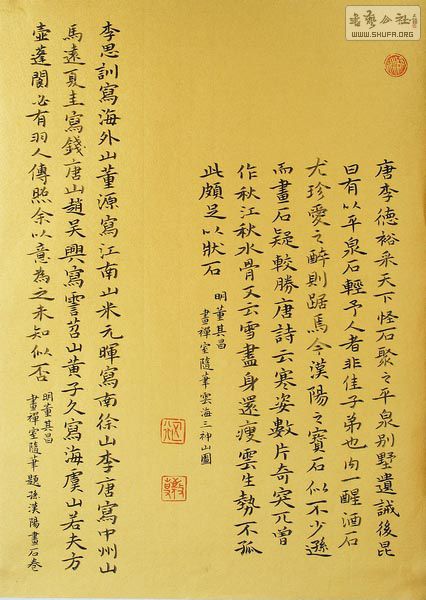 唐李德裕采天下怪石聚之平泉別墅遺誡後昆
曰有以平泉石輕予人者非佳子弟也內一醒酒石
尤珍愛之醉則踞焉今漢陽之寶石似不少遜
而畫石疑較勝唐詩云寒姿數片奇突兀曾
作秋江秋水骨又云雪盡身還瘦雲生勢不孤
此頗足以狀石
明董其昌
畫禪室隨筆雲海三神山圖
李思訓寫海外山董源寫江南山米元暉寫南徐山李唐寫中州山
馬遠夏圭寫錢唐山趙吳興寫霅苕山黃子久寫海虞山若夫方
壺蓬閬必有羽人傳照余以意為之未知似否
明董其昌
畫禪室隨筆題孫漢陽畫石卷
書藝公社
WWW.SHUFA.ORG